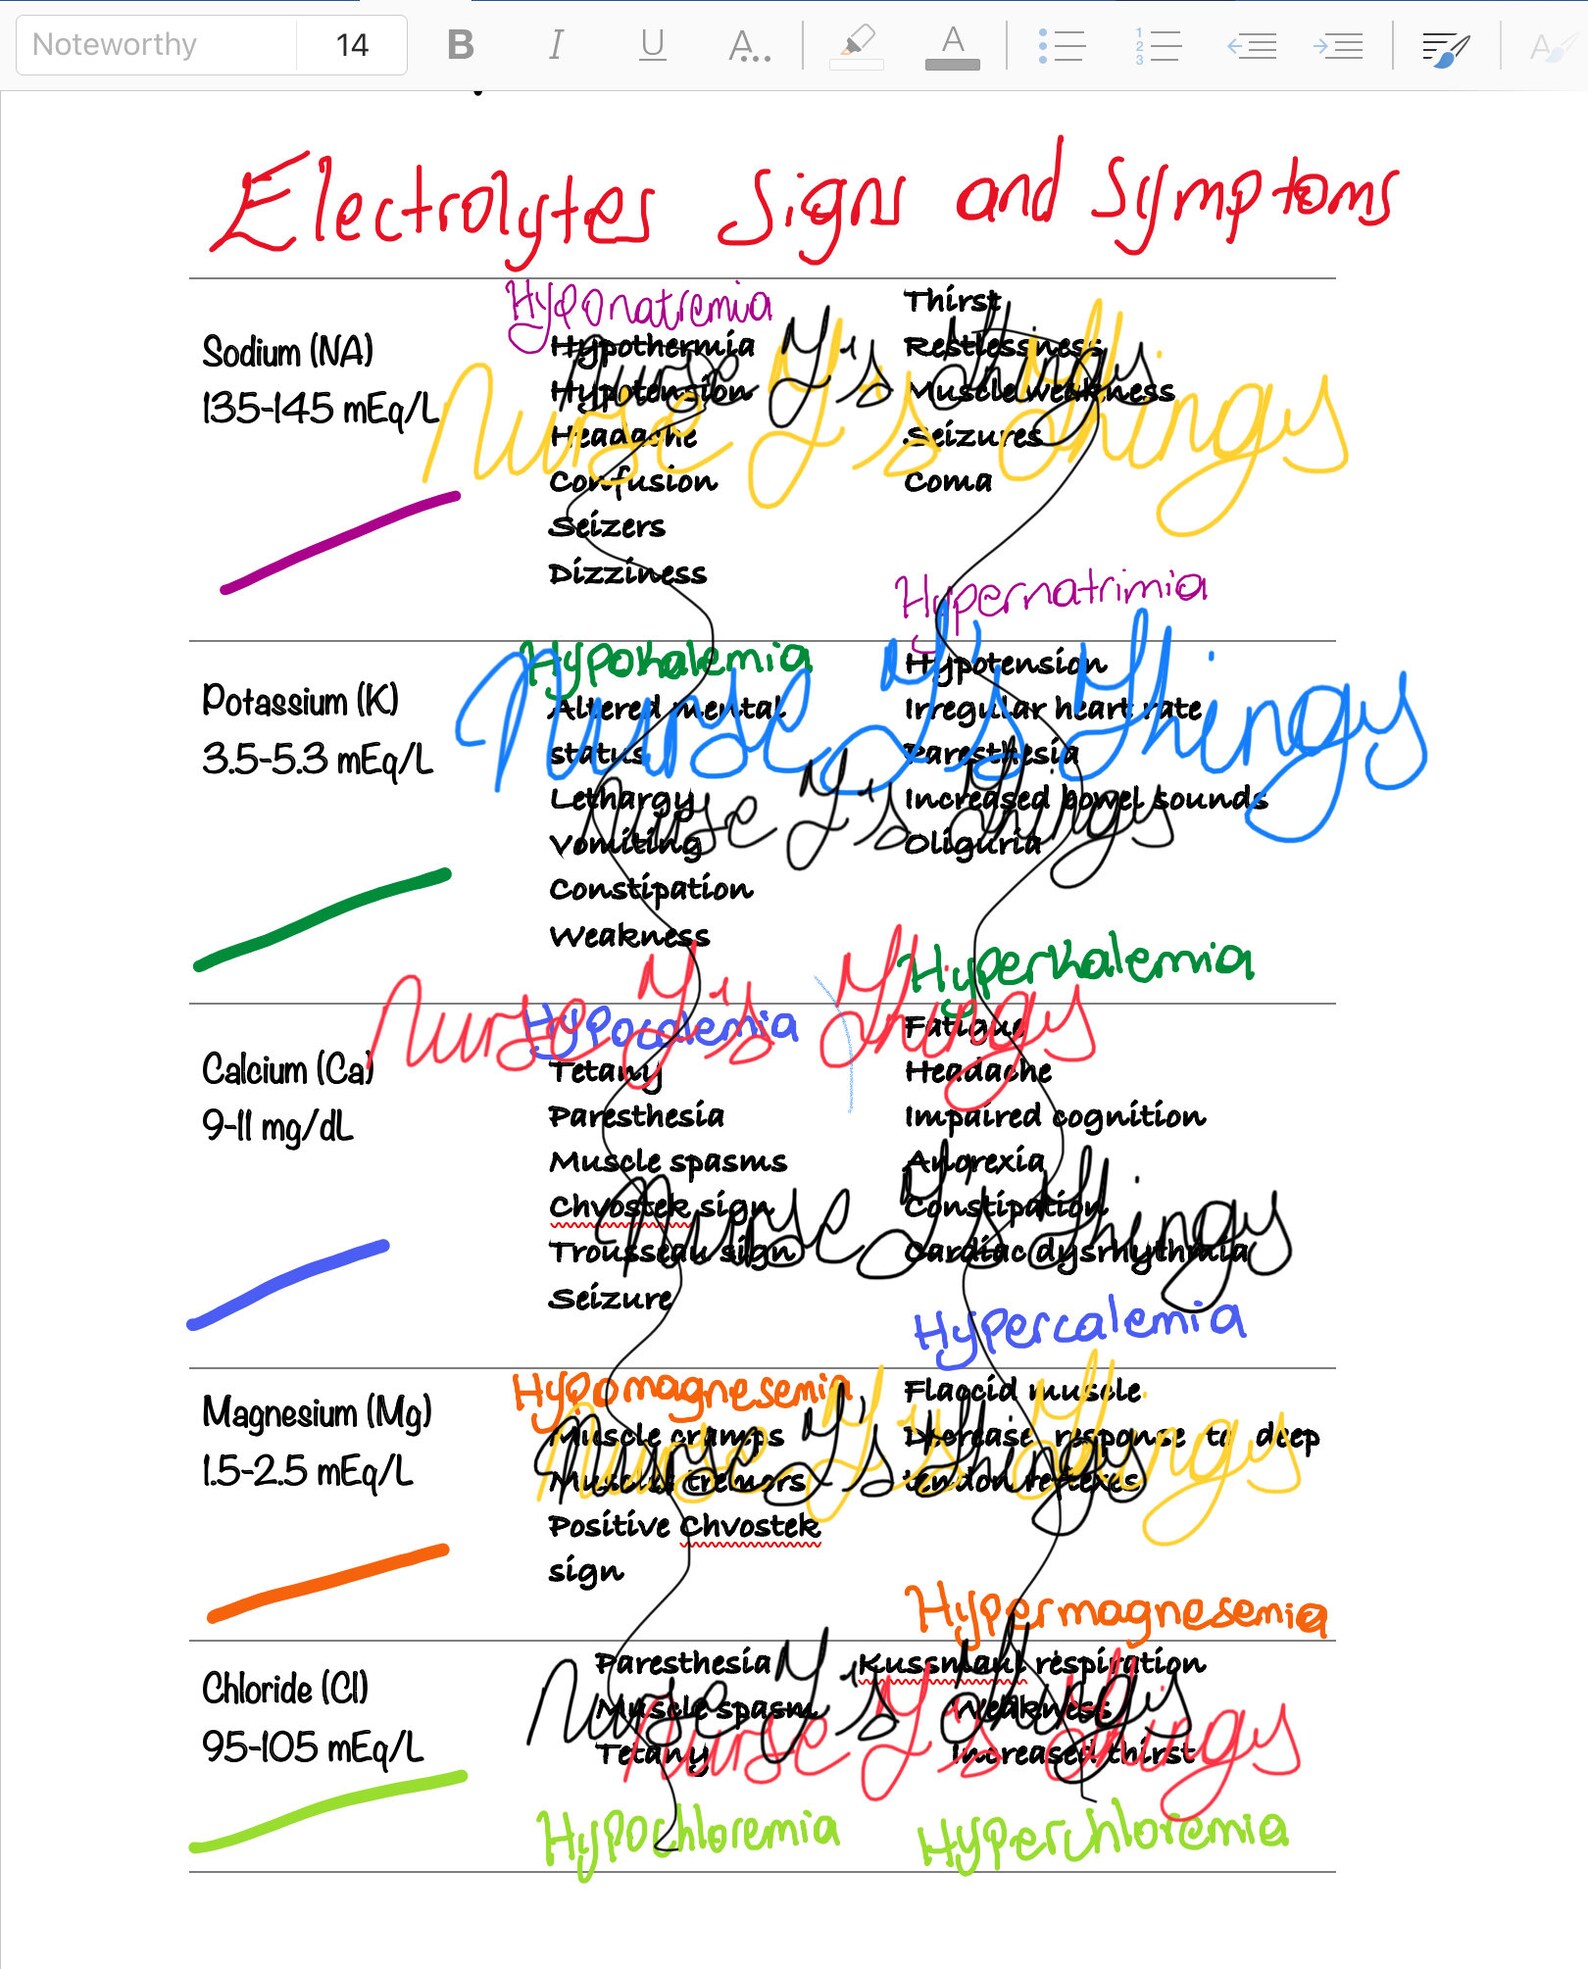 Noteworthy 14 B I U A...
A
Electrolytes Signs and Symptoms
Sodium (NA)
135-145 mEq/L
Hyponatremia
Hypothermia
Hypotension
Headache
Confusion
Seizers
Dizziness
Thirst
Restlessness
Muscle weakness
Seizures
Coma
Hypernatrimia
Nurse Y's thingy
Nurse Y's thingy
Potassium (K)
3.5-5.3 mEq/L
Hypokalemia
Altered mental
status
Lethargy
Vomiting
Constipation
Weakness
Hypotension
Irregular heart rate
Paresthesia
Increased bowel sounds
Oliguria
Hyperkalemia
Nurse Y's thingy
Nurse Y's thingy
Calcium (Ca)
9-11 mg/dL
Hypocalemia
Tetany
Paresthesia
Muscle spasms
Chvostek sign
Trousseau sign
Seizure
Fatigue
Headache
Impaired cognition
Anorexia
Constipation
Cardiac dysrhythmia
Hypercalemia
Nurse Y's thingy
Nurse Y's thingy
Magnesium (Mg)
1.5-2.5 mEq/L
Hypomagnesemia
Muscle cramps
Muscle tremors
Positive Chvostek
sign
Flaccid muscle
Decrease response to deep
tendon reflexes
Hypermagnesemia
Nurse Y's thingy
Nurse Y's thingy
Chloride (Cl)
95-105 mEq/L
Paresthesia
Muscle spasm
Tetany
Hypochloremia
Kussmaul respiration
Weakness
Increased thirst
Hyperchloremia
Nurse Y's thingy
Nurse Y's thingy